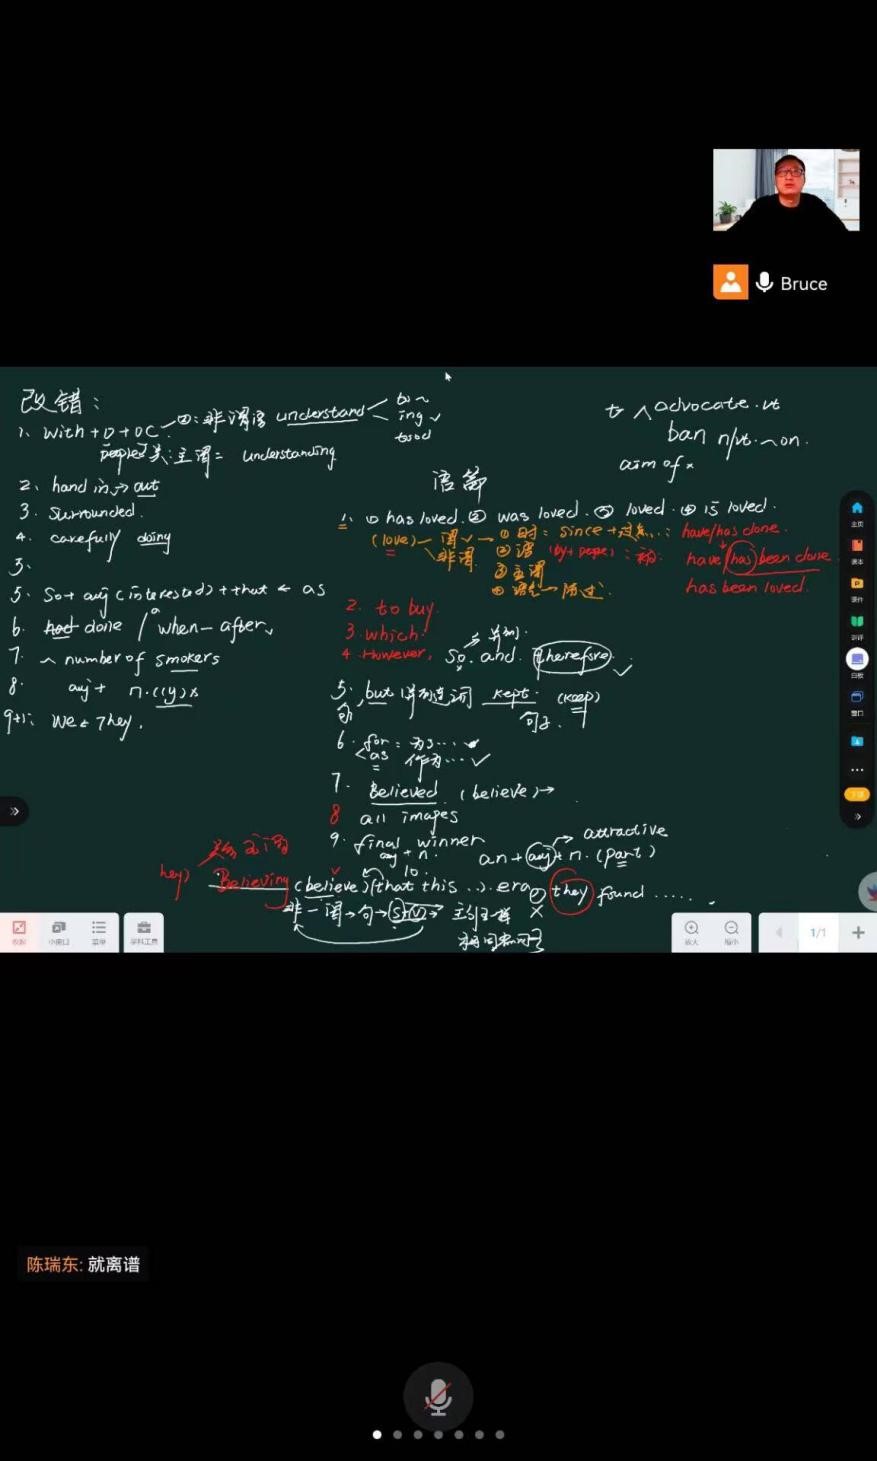 Bruce
改错：
1、With + O + OC ②：非谓语 understand to ~
ing ✓
people 关：主谓 = understanding
to advocate. vt
ban n/vt. ~ on.
aim of ×
2、hand in → out
3. Surrounded.
4. carefully doing
3.
5. So + adj (interested) + that ← as
6. had done / when — after
7. ~ number of smokers
8. adj + n. (ly) ×
We & They.
语篇
1. ① has loved. ② was loved. ③ loved. ④ is loved.
(love) — 谓 ✓ → ① 时: since +
非谓
② 语
③ 主谓
④
have/has done.
have (has) been done
has been loved.
2. to buy.
3. which.
4. However, So. and. therefore ✓
并列
5. but 并列连词 kept. (keep)
句子
6. for : 为了…
as 作为… ✓
7. Believed (believe) →
8 all images
9. final winner
adj + n.
an + adj + n. (part)
attractive
10.
Believing (believe) (that this ...) era, they found ......
非一谓 → 句 → S+V →
主页
课本
课件
白板
窗口
下课
小窗口
菜单
学科工具
放大
缩小
1/1
陈瑞东: 就离谱